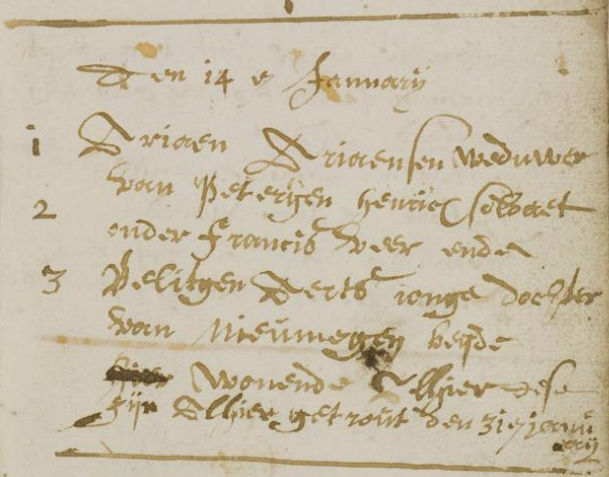 Den 14 e January
1 Ariaen Ariaensen weduwer
van Peterijen henricx soldaet
2 onder Francis veer ende
3 Belitgen Aerts ionge dochter
van Nieumegen beyde
wonende Alhier dese
sijn Alhier getrout den 31 e janu
arij